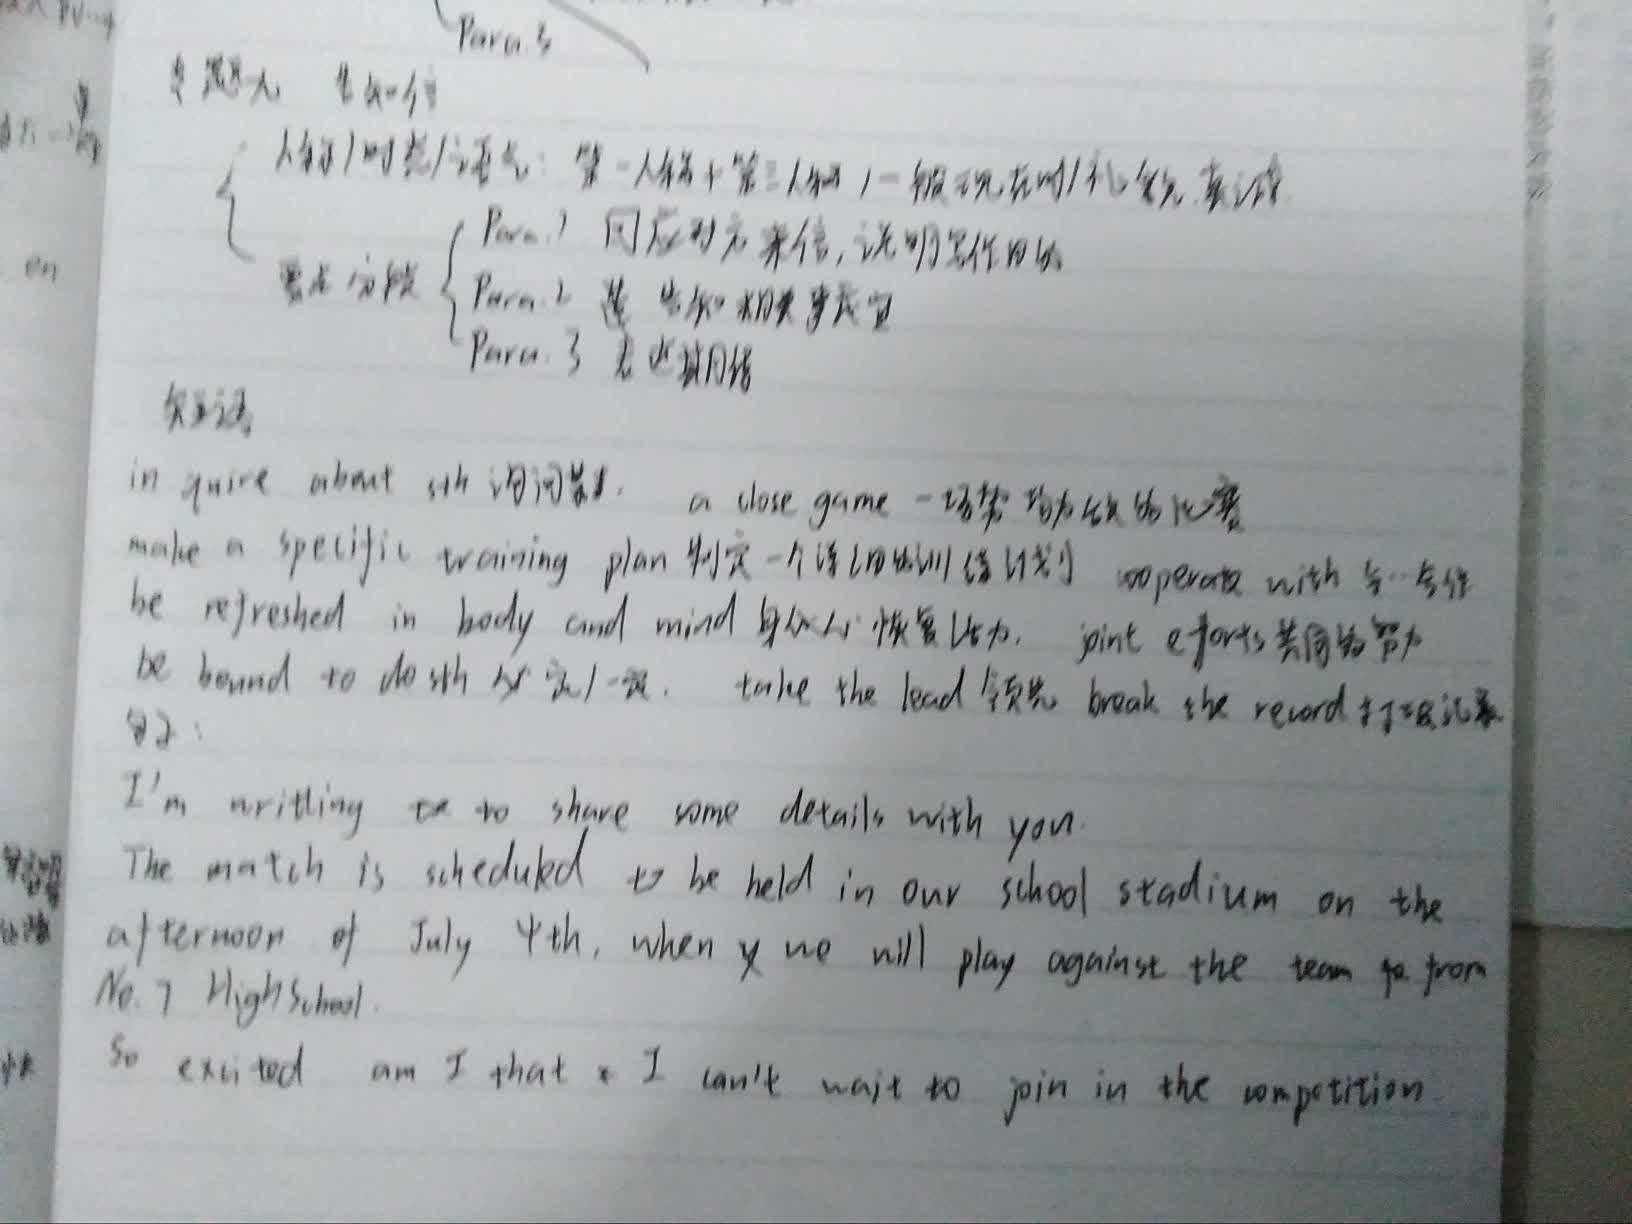 Para.3
专题九 告知信
人称/时态/语气: 第一人称+第三人称/一般现在时/礼貌、真诚
Para.1 回应对方来信,说明写作目的
要点分段 Para.2 告知相关事宜
Para.3 表达期待
en
inquire about sth 询问某事. a close game 一场势均力敌的比赛
make a specific training plan 制定一个详细的训练计划 cooperate with 与…合作
be refreshed in body and mind 身心恢复活力. joint efforts 共同的努力
be bound to do sth 必定/一定. take the lead 领先 break the record 打破记录
句子:
I'm writling to share some details with you.
The match is scheduled to be held in our school stadium on the
afternoon of July 4th, when we will play against the team from
No.7 High School.
So excited am I that I can't wait to join in the competition